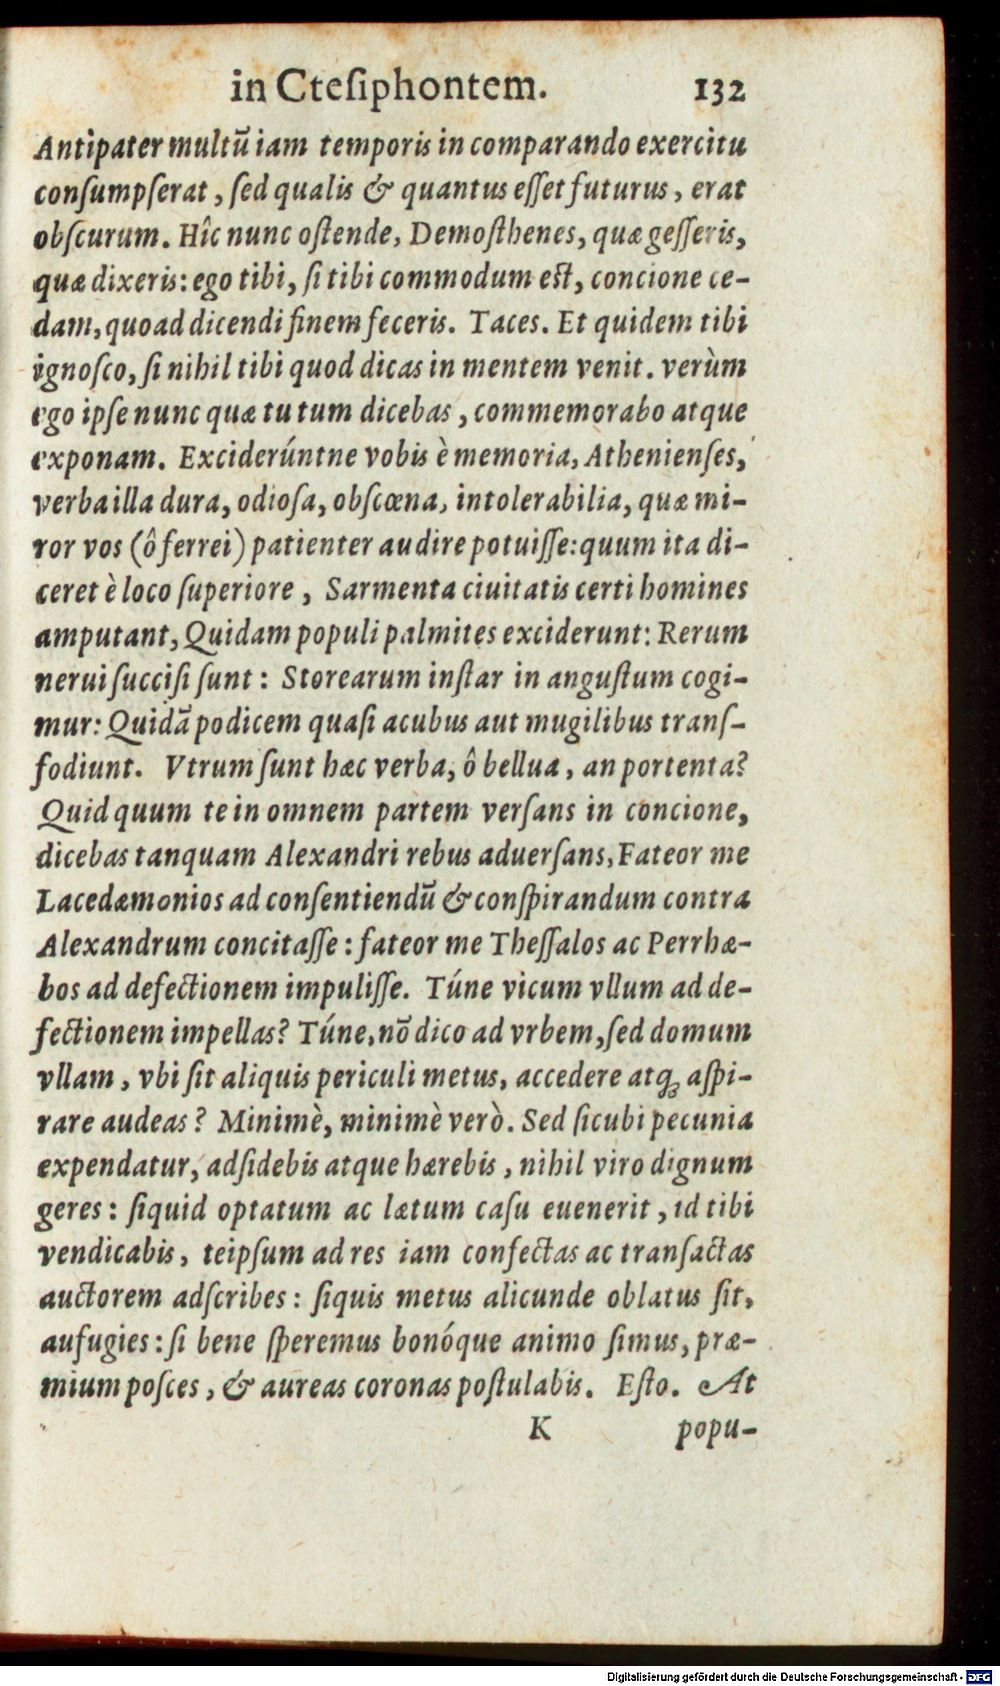 in Cteſiphontem. 132
Antipater multũ iam temporis in comparando exercitu
conſumpſerat, ſed qualis & quantus eſſet futurus, erat
obſcurum. Hîc nunc oſtende, Demoſthenes, quæ geſſeris,
quæ dixeris: ego tibi, ſi tibi commodum eſt, concione ce-
dam, quoad dicendi finem feceris. Taces. Et quidem tibi
ignoſco, ſi nihil tibi quod dicas in mentem venit. verùm
ego ipſe nunc quæ tu tum dicebas, commemorabo atque
exponam. Exciderúntne vobis è memoria, Athenienſes,
verba illa dura, odioſa, obſcœna, intolerabilia, quæ mi-
ror vos (ô ferrei) patienter audire potuiſſe: quum ita di-
ceret è loco ſuperiore, Sarmenta ciuitatis certi homines
amputant, Quidam populi palmites exciderunt: Rerum
nerui ſucciſi ſunt: Storearum inſtar in anguſtum cogi-
mur: Quidã podicem quaſi acubus aut mugilibus tranſ-
fodiunt. Vtrum ſunt hæc verba, ô bellua, an portenta?
Quid quum te in omnem partem verſans in concione,
dicebas tanquam Alexandri rebus aduerſans, Fateor me
Lacedæmonios ad conſentiendũ & conſpirandum contra
Alexandrum concitaſſe: fateor me Theſſalos ac Perrhæ-
bos ad defectionem impuliſſe. Túne vicum vllum ad de-
fectionem impellas? Túne, nõ dico ad vrbem, ſed domum
vllam, vbi ſit aliquis periculi metus, accedere atq; aſpi-
rare audeas? Minimè, minimè verò. Sed ſicubi pecunia
expendatur, adſidebis atque hærebis, nihil viro dignum
geres: ſiquid optatum ac lætum caſu euenerit, id tibi
vendicabis, teipſum ad res iam confectas ac tranſactas
auctorem adſcribes: ſiquis metus alicunde oblatus ſit,
aufugies: ſi bene ſperemus bonóque animo ſimus, præ-
mium poſces, & aureas coronas poſtulabis. Eſto. At
K popu-
Digitalisierung gefördert durch die Deutsche Forschungsgemeinschaft - DFG